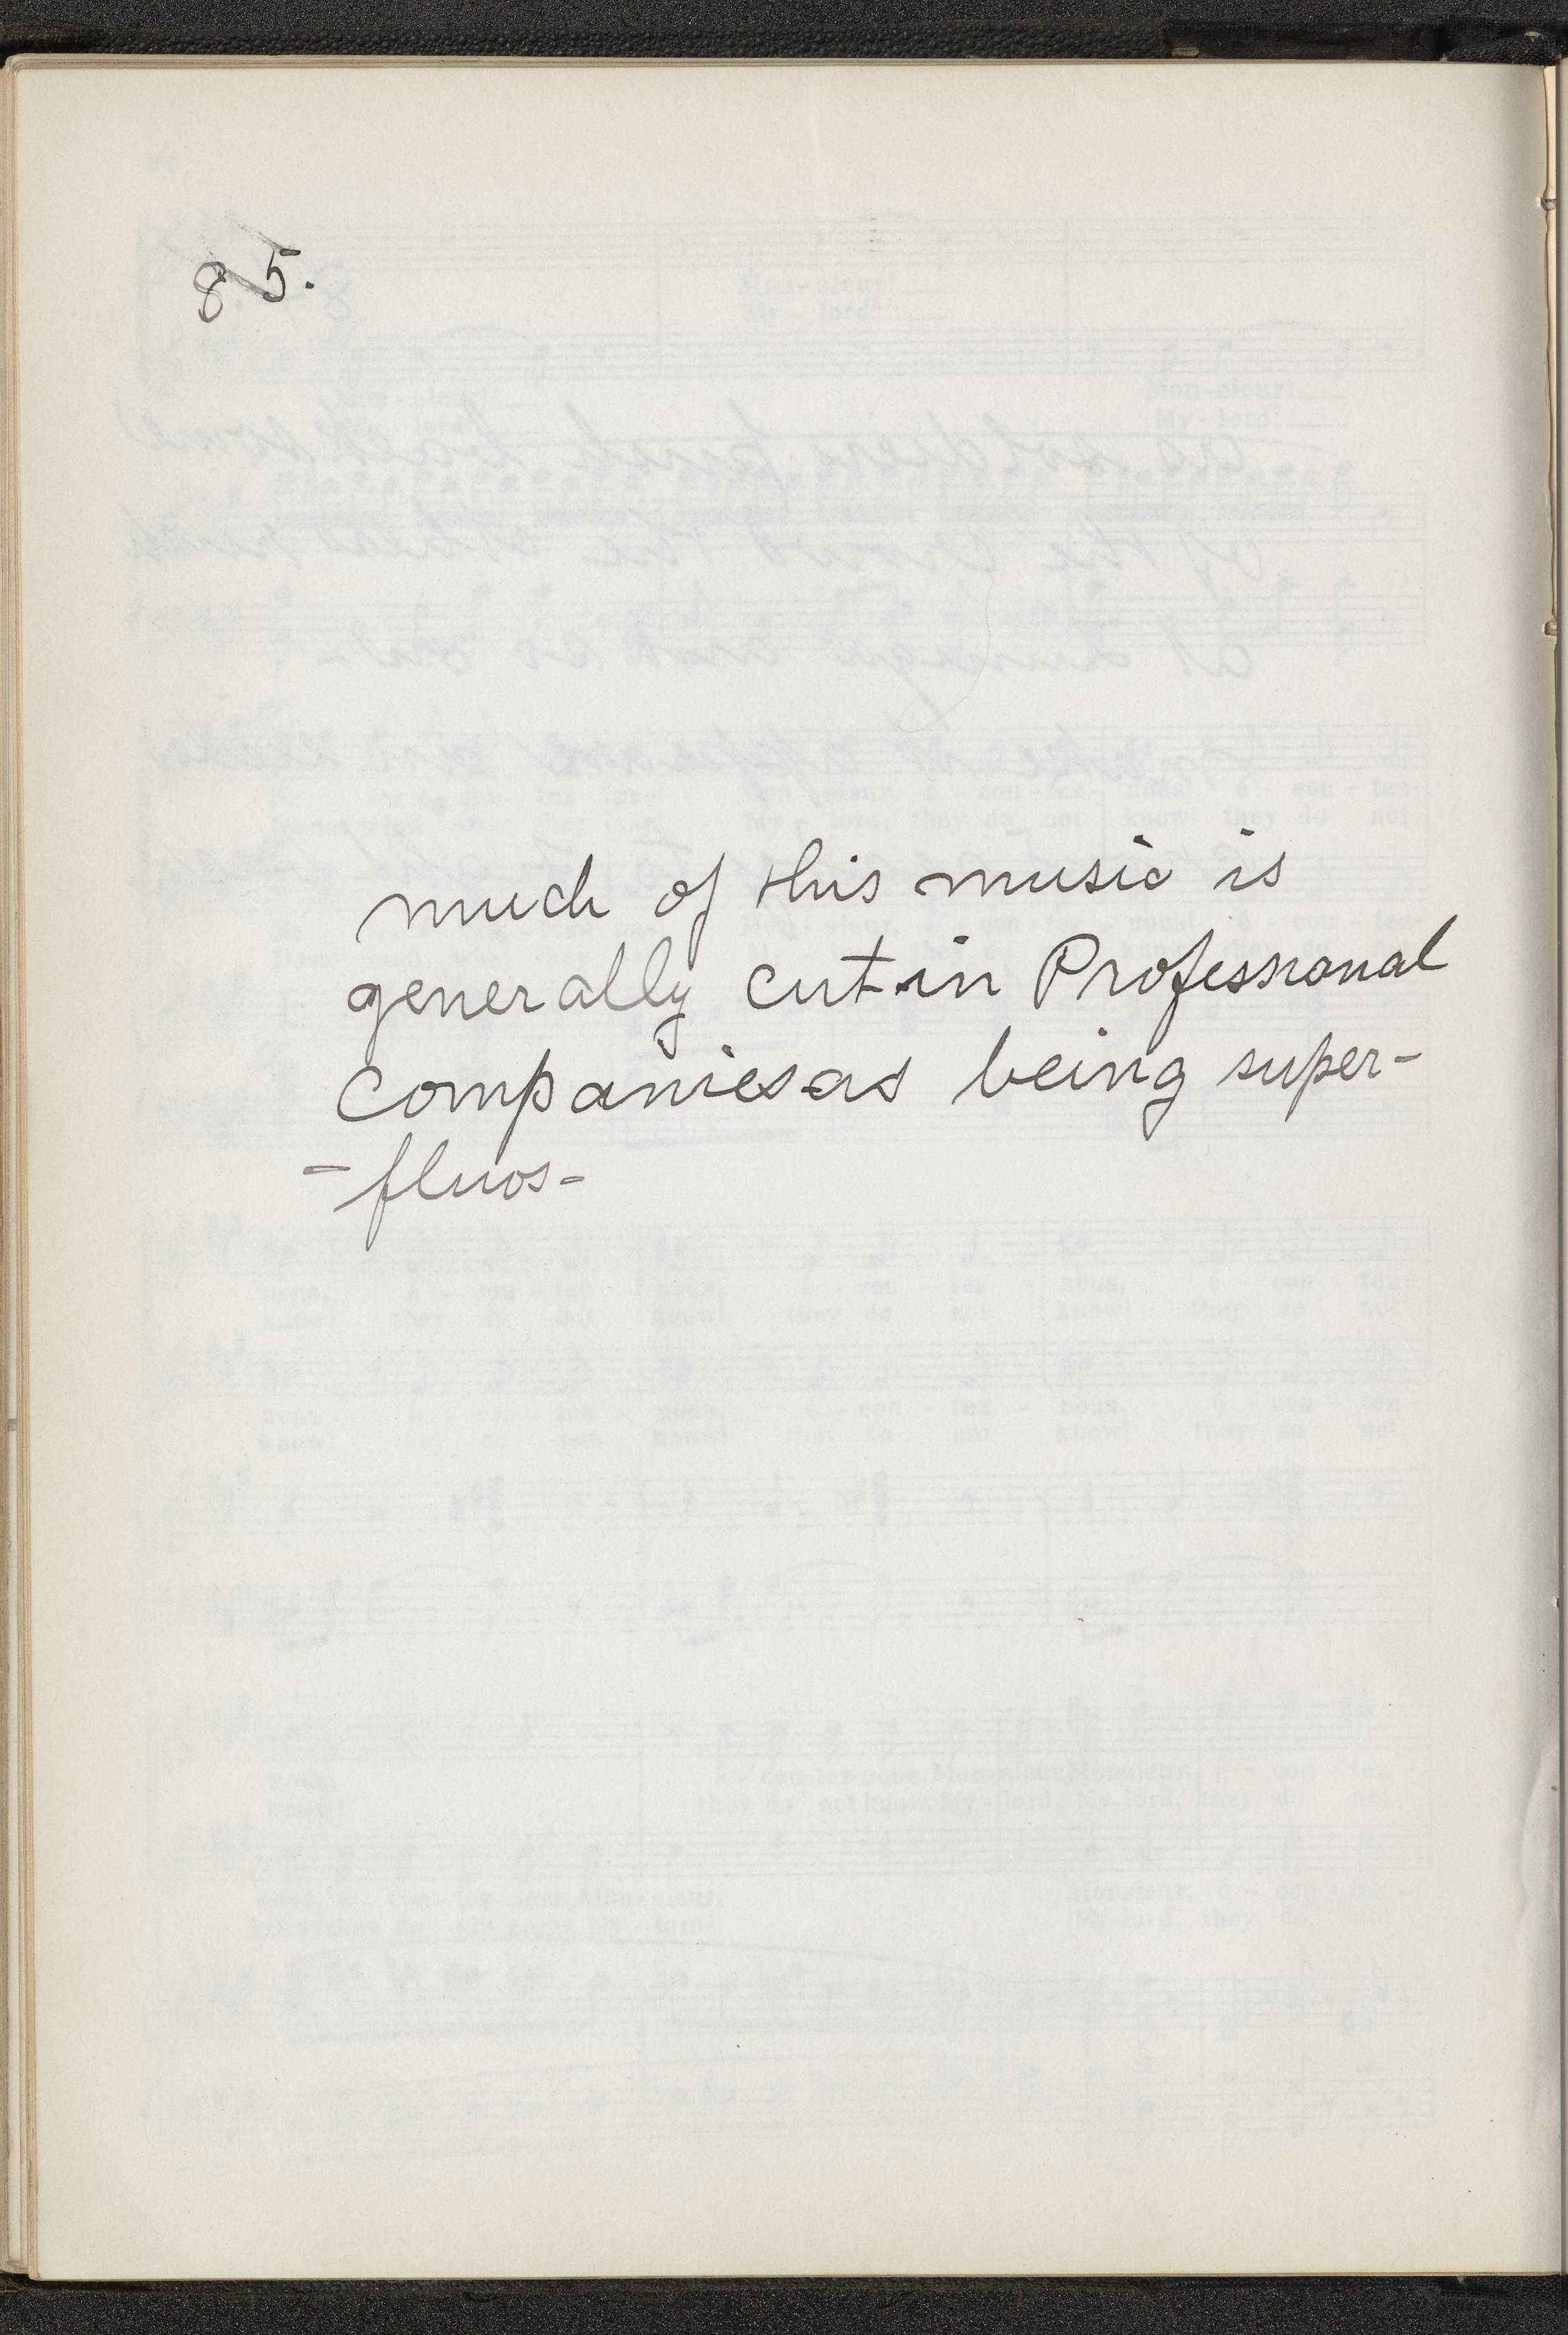 85.
much of this music is
generally cut in Professional
companies as being super-
-fluos-